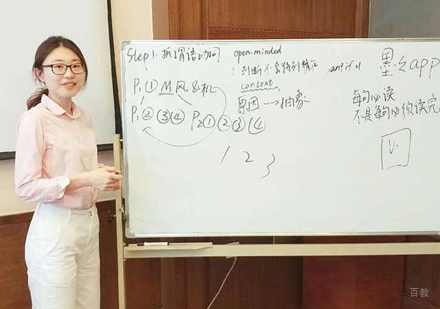 Step 1: 抓谓语动词 open-minded
1. 判断不会特别精确
content
墨墨app
P1 ① M 风 危机
原因 → 抽象
每句必读
不是每句必须读完
P1 ② ③ ④ P2 ① ② ③ ④
1 2 3
百教